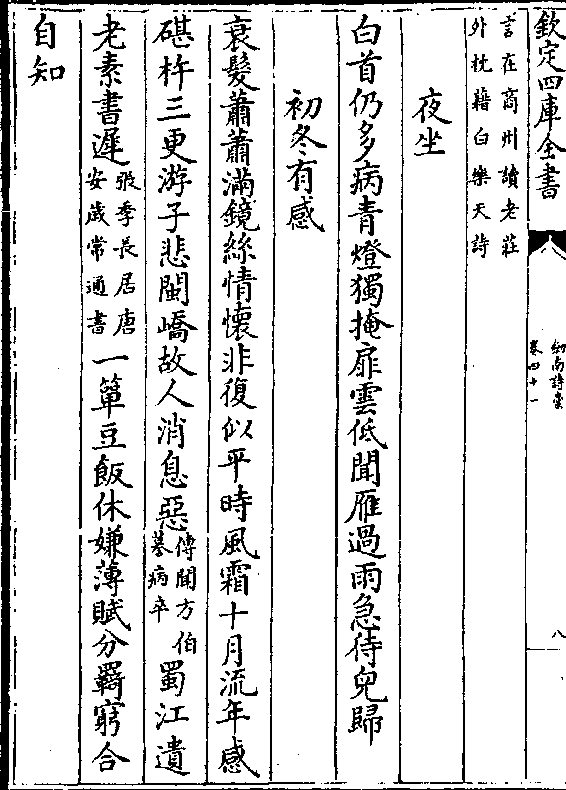 欽定四庫全書
劍南詩稾
卷四十一
八
言在商州讀老莊
外枕藉白樂天詩
夜坐
白首仍多病青燈獨掩扉雲低聞雁過雨急待兒歸
初冬有感
衰髮蕭蕭滿鏡絲情懷非復似平時風霜十月流年感
碪杵三更游子悲閩嶠故人消息惡傳聞方伯謩病卒蜀江遺
老素書遲張季長居唐安歲常通書一簞豆飯休嫌薄賦分羇窮合
自知